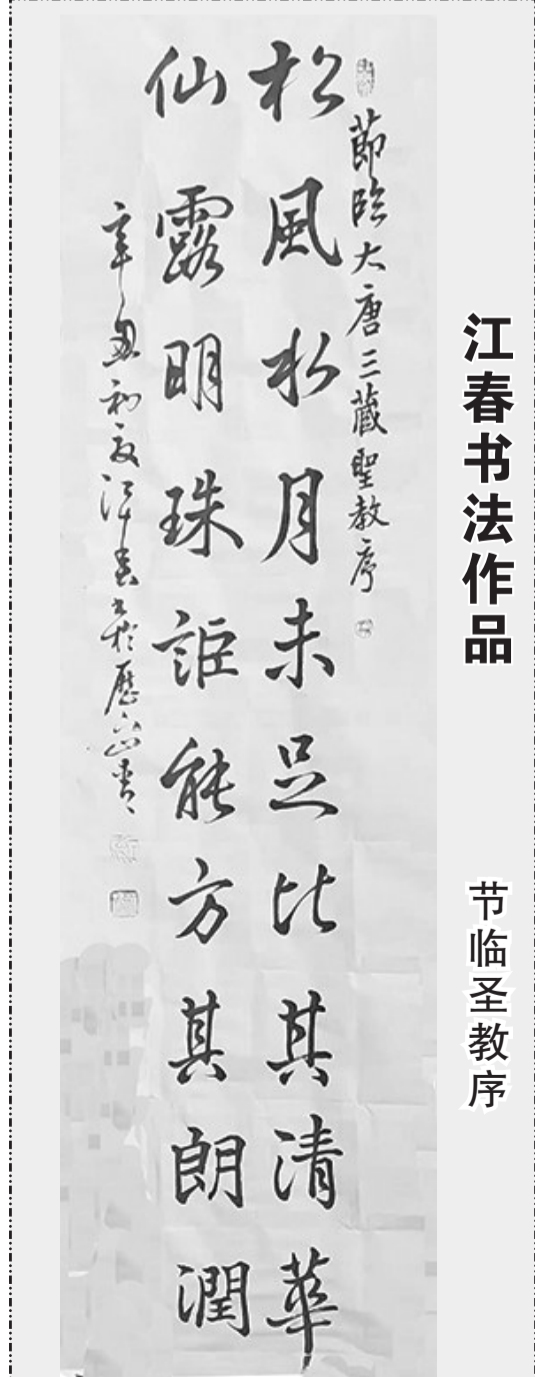 江春书法作品
节临圣教序
節臨大唐三藏聖教序
松風水月未足比其清華
仙露明珠詎能方其朗潤
辛丑初夏江春书於歷山